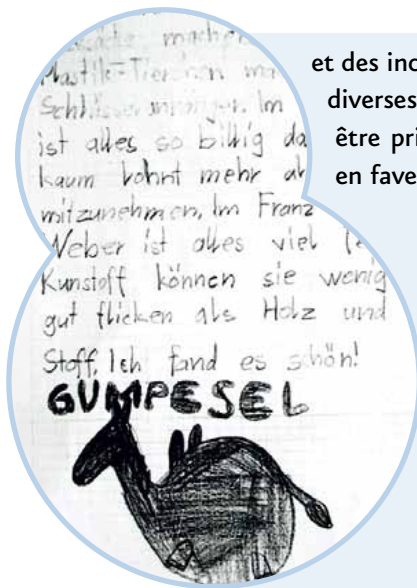 machen
Plastik-Tierchen
Schlüsselanhänger. Im
ist alles so billig da
kaum lohnt mehr
mitzunehmen. Im Franz
Weber ist alles viel
Kunstoff können sie wenig
gut flicken als Holz und
Stoff. Ich fand es schön!
GUMPESEL
et des
diverses
être
en